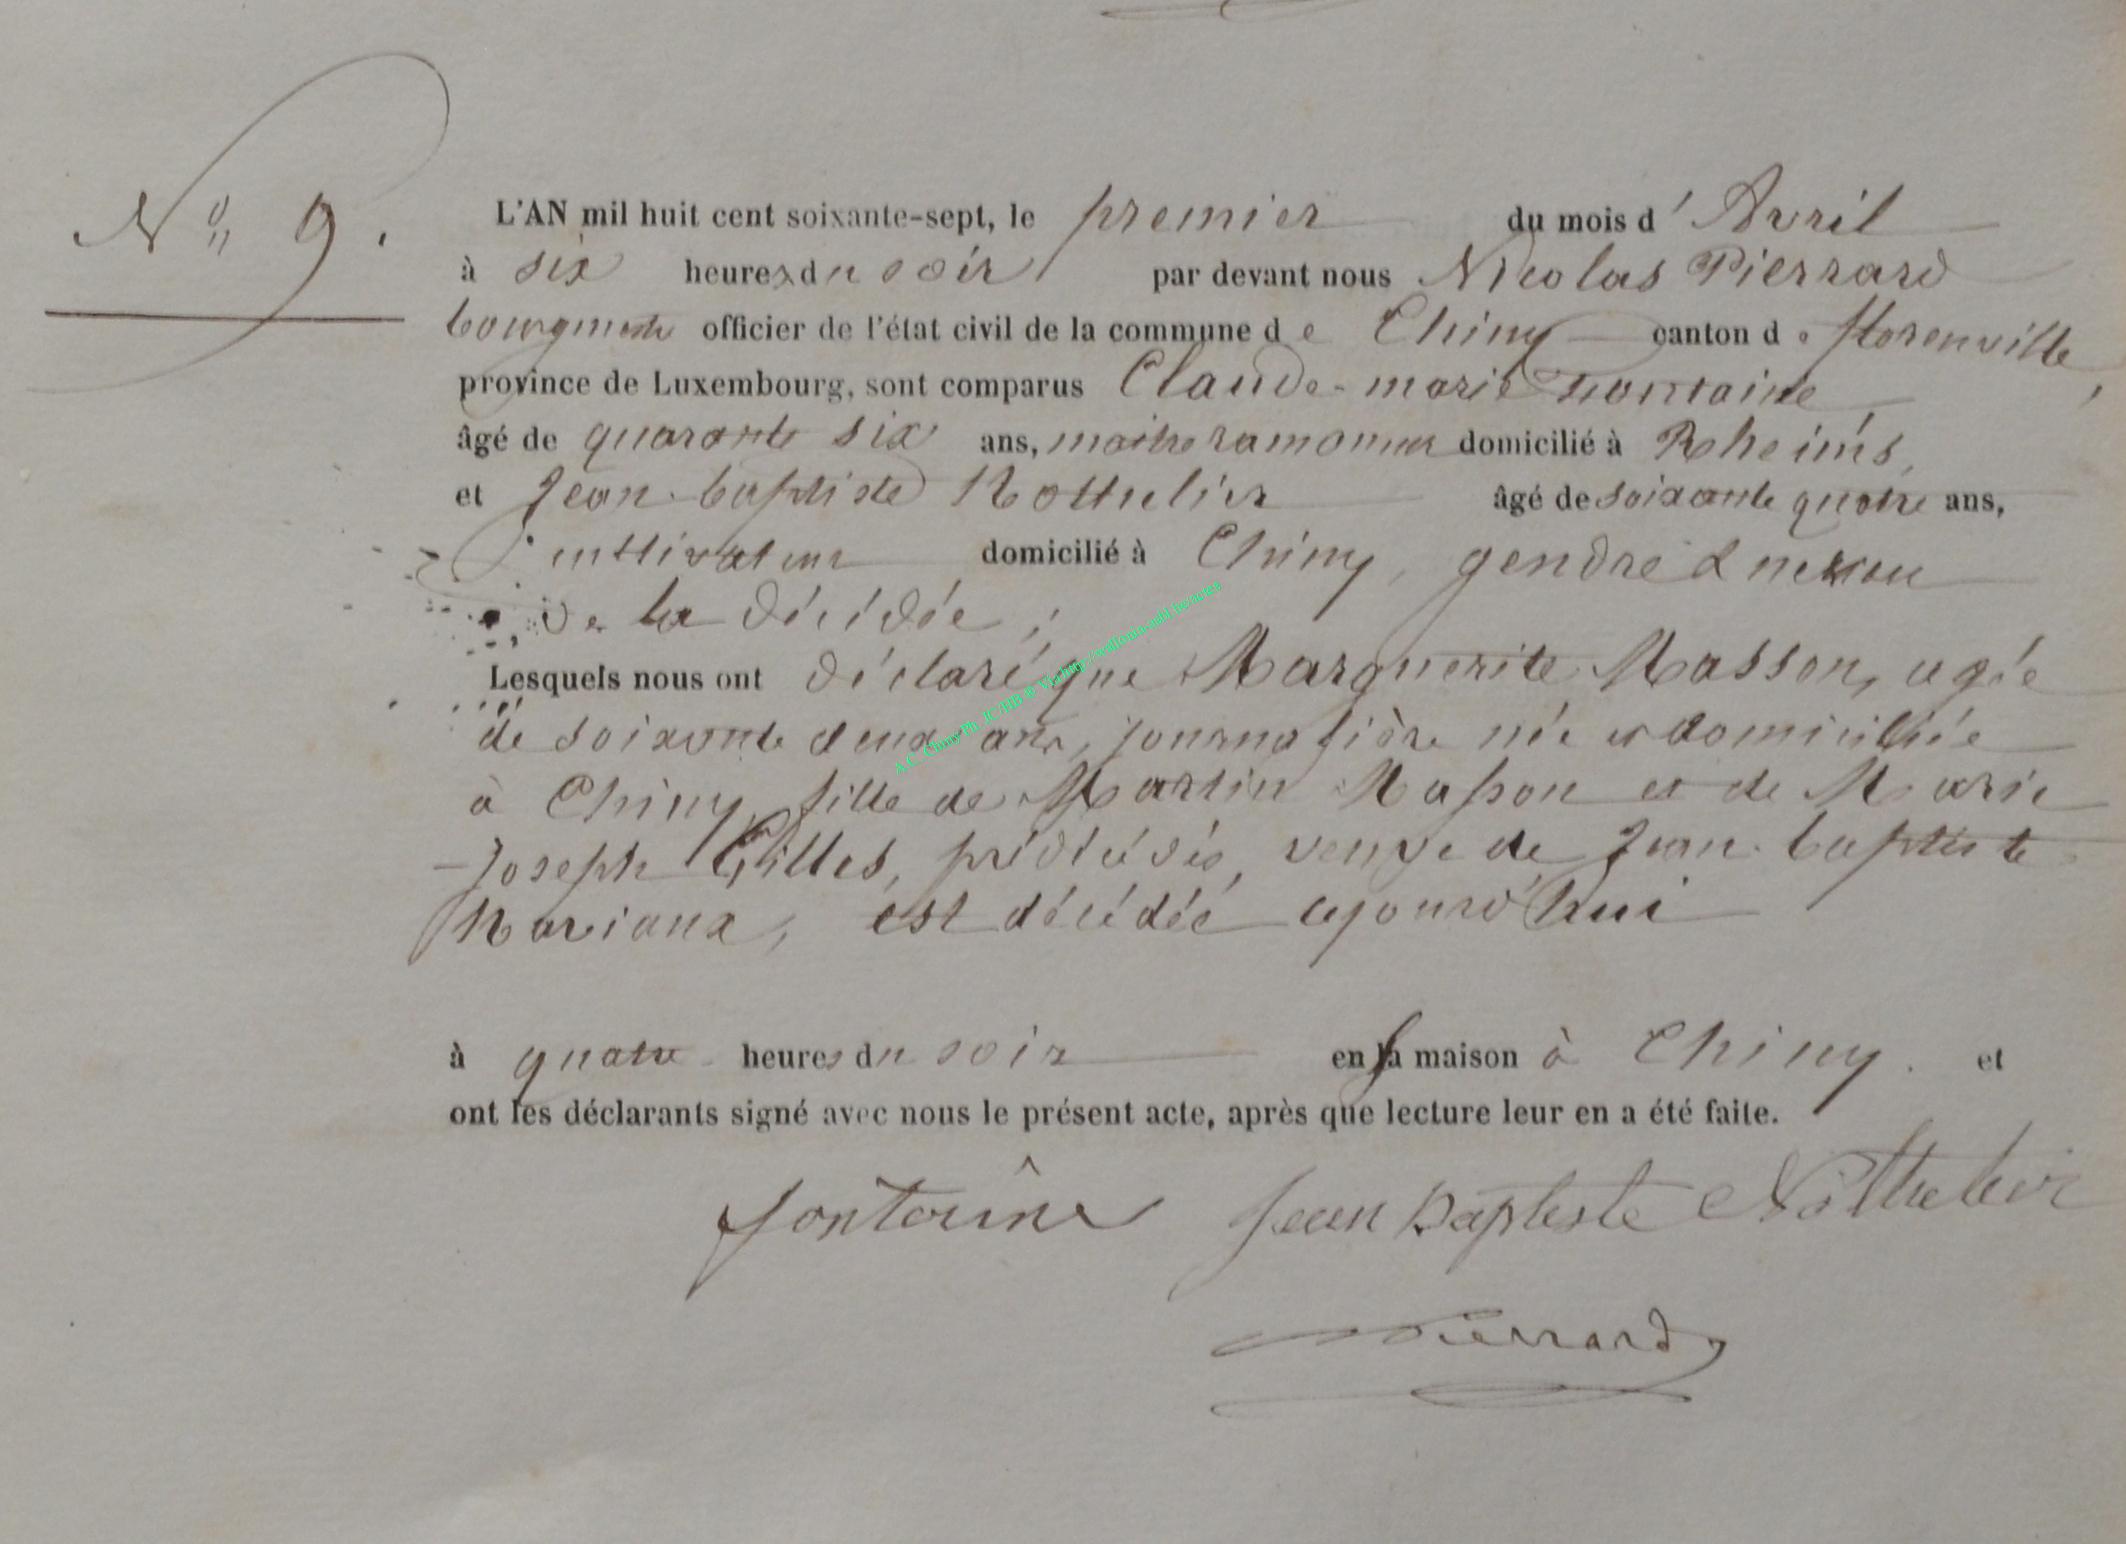 N° 9.
L'AN mil huit cent soixante-sept, le premier du mois d'Avril
à six heures du soir par devant nous Nicolas Pierrard
bourgmestre officier de l'état civil de la commune de Chiny canton de florenville,
province de Luxembourg, sont comparus Claude-marie Fontaine
âgé de quarante six ans, maitre ramoneur domicilié à Rheims,
et Jean-baptiste Nothelier âgé de soixante quatre ans,
cultivateur domicilié à Chiny, gendre & neveu
de la décédée ;
Lesquels nous ont déclaré que Marguerite Masson, agée
de soixante deux ans, journalière née et domiciliée
à Chiny, fille de Martin Masson et de Marie
-Joseph Gilles, prédécédés, veuve de Jean-baptiste
Naviaux, est décédée aujourd'hui
à quatre heures du soir en sa maison à Chiny. et
ont les déclarants signé avec nous le présent acte, après que lecture leur en a été faite.
fontaîne Jean Baptiste Nothelier
Pierrard